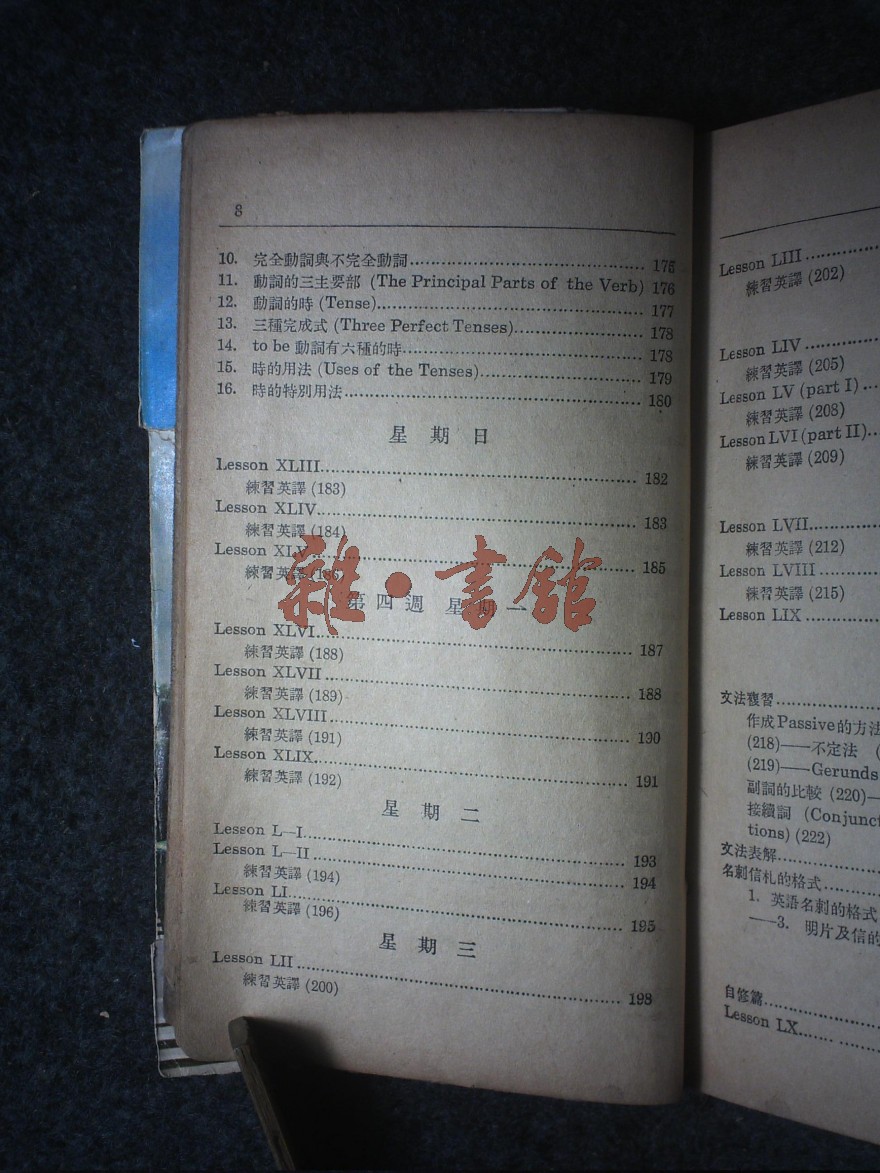 8
10. 完全動詞與不完全動詞 175
11. 動詞的三主要部 (The Principal Parts of the Verb) 176
12. 動詞的時 (Tense) 177
13. 三種完成式 (Three Perfect Tenses) 178
14. to be 動詞有六種的時 178
15. 時的用法 (Uses of the Tenses) 179
16. 時的特別用法 180
星期日
Lesson XLIII 182
練習英譯 (183)
Lesson XLIV 183
練習英譯 (184)
Lesson XLV 185
練習英譯 (186)
雜·書館
第四週 星期一
Lesson XLVI 187
練習英譯 (188)
Lesson XLVII 188
練習英譯 (189)
Lesson XLVIII 190
練習英譯 (191)
Lesson XLIX 191
練習英譯 (192)
星期二
Lesson L—I 193
Lesson L—II 194
練習英譯 (194)
Lesson LI 195
練習英譯 (196)
星期三
Lesson LII 198
練習英譯 (200)
Lesson LIII
練習英譯 (202)
Lesson LIV
練習英譯 (205)
Lesson LV (part I)
練習英譯 (208)
Lesson LVI (part II)
練習英譯 (209)
Lesson LVII
練習英譯 (212)
Lesson LVIII
練習英譯 (215)
Lesson LIX
文法複習
作成Passive的方法
(218)——不定法 (
(219)——Gerunds
副詞的比較 (220)—
接續詞 (Conjunct
tions) (222)
文法表解
名刺信札的格式
1. 英語名刺的格式
——3. 明片及信的
自修篇
Lesson LX